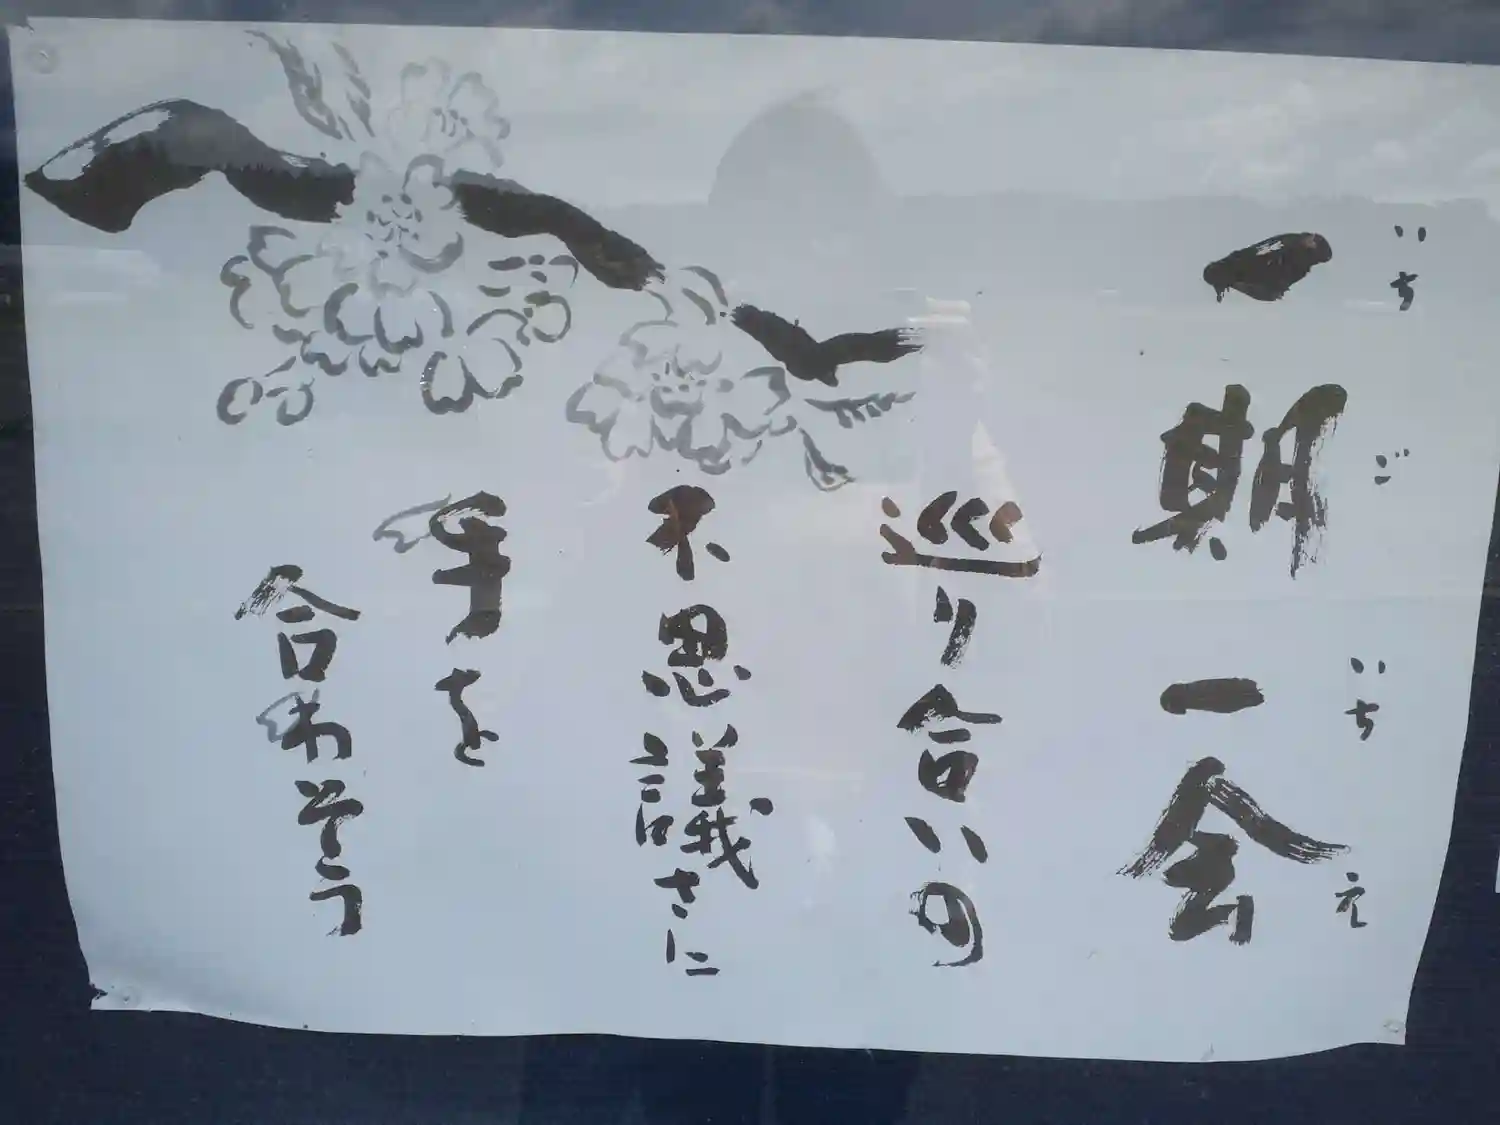 一期一会
いちごいちえ
巡り合いの
不思議さに
手を
合わそう